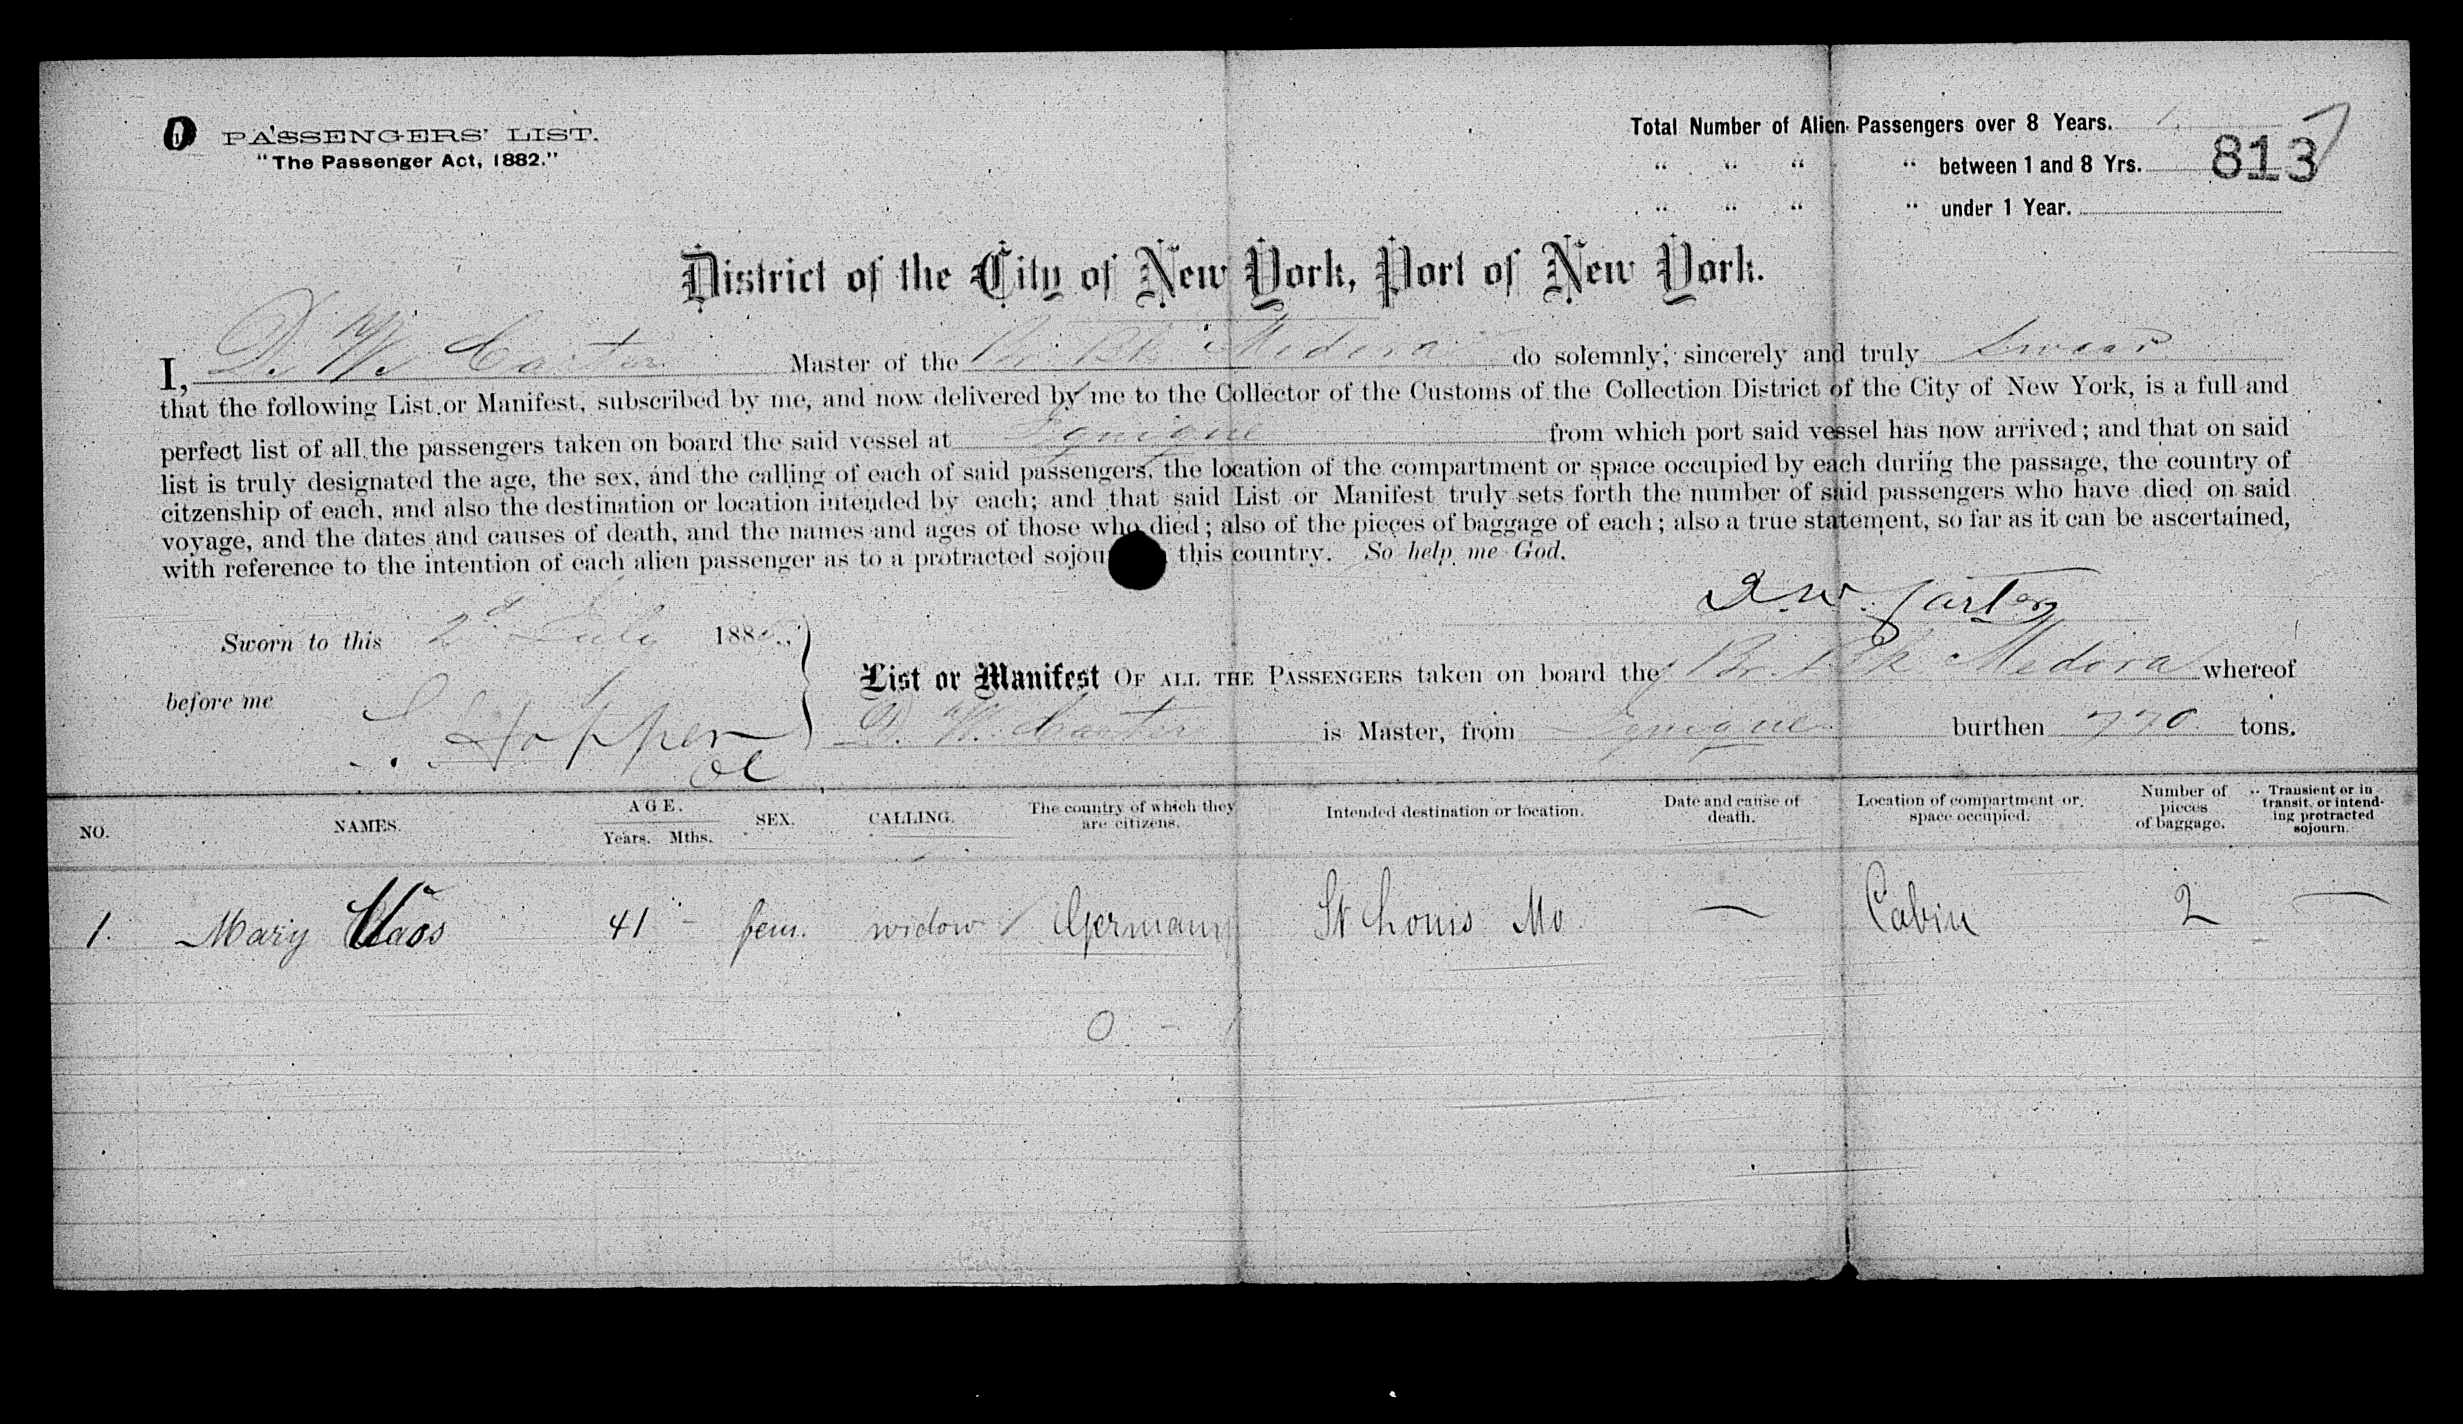 PASSENGERS' LIST.
"The Passenger Act, 1882."
Total Number of Alien Passengers over 8 Years. 1.
" " " " between 1 and 8 Yrs.
" " " " under 1 Year.
813
District of the City of New York, Port of New York.
I, D. W. Carter Master of the Br. Bk Medora do solemnly, sincerely and truly swear
that the following List or Manifest, subscribed by me, and now delivered by me to the Collector of the Customs of the Collection District of the City of New York, is a full and
perfect list of all the passengers taken on board the said vessel at Iquique from which port said vessel has now arrived; and that on said
list is truly designated the age, the sex, and the calling of each of said passengers, the location of the compartment or space occupied by each during the passage, the country of
citzenship of each, and also the destination or location intended by each; and that said List or Manifest truly sets forth the number of said passengers who have died on said
voyage, and the dates and causes of death, and the names and ages of those who died; also of the pieces of baggage of each; also a true statement, so far as it can be ascertained,
with reference to the intention of each alien passenger as to a protracted sojour this country. So help me God.
D. W. Carter
Sworn to this 2d July 188
before me Hopper
List or Manifest OF ALL THE PASSENGERS taken on board the Br. Bk Medora whereof
D. W. Carter is Master, from Iquique burthen 770 tons.
NO. NAMES. AGE. Years. Mths. SEX. CALLING. The country of which they are citizens. Intended destination or location. Date and cause of death. Location of compartment or space occupied. Number of pieces of baggage. Transient or in transit, or intending protracted sojourn.
1. Mary Claos 41 - fem. widow Germany St Louis Mo — Cabin 2 —
0 - 1